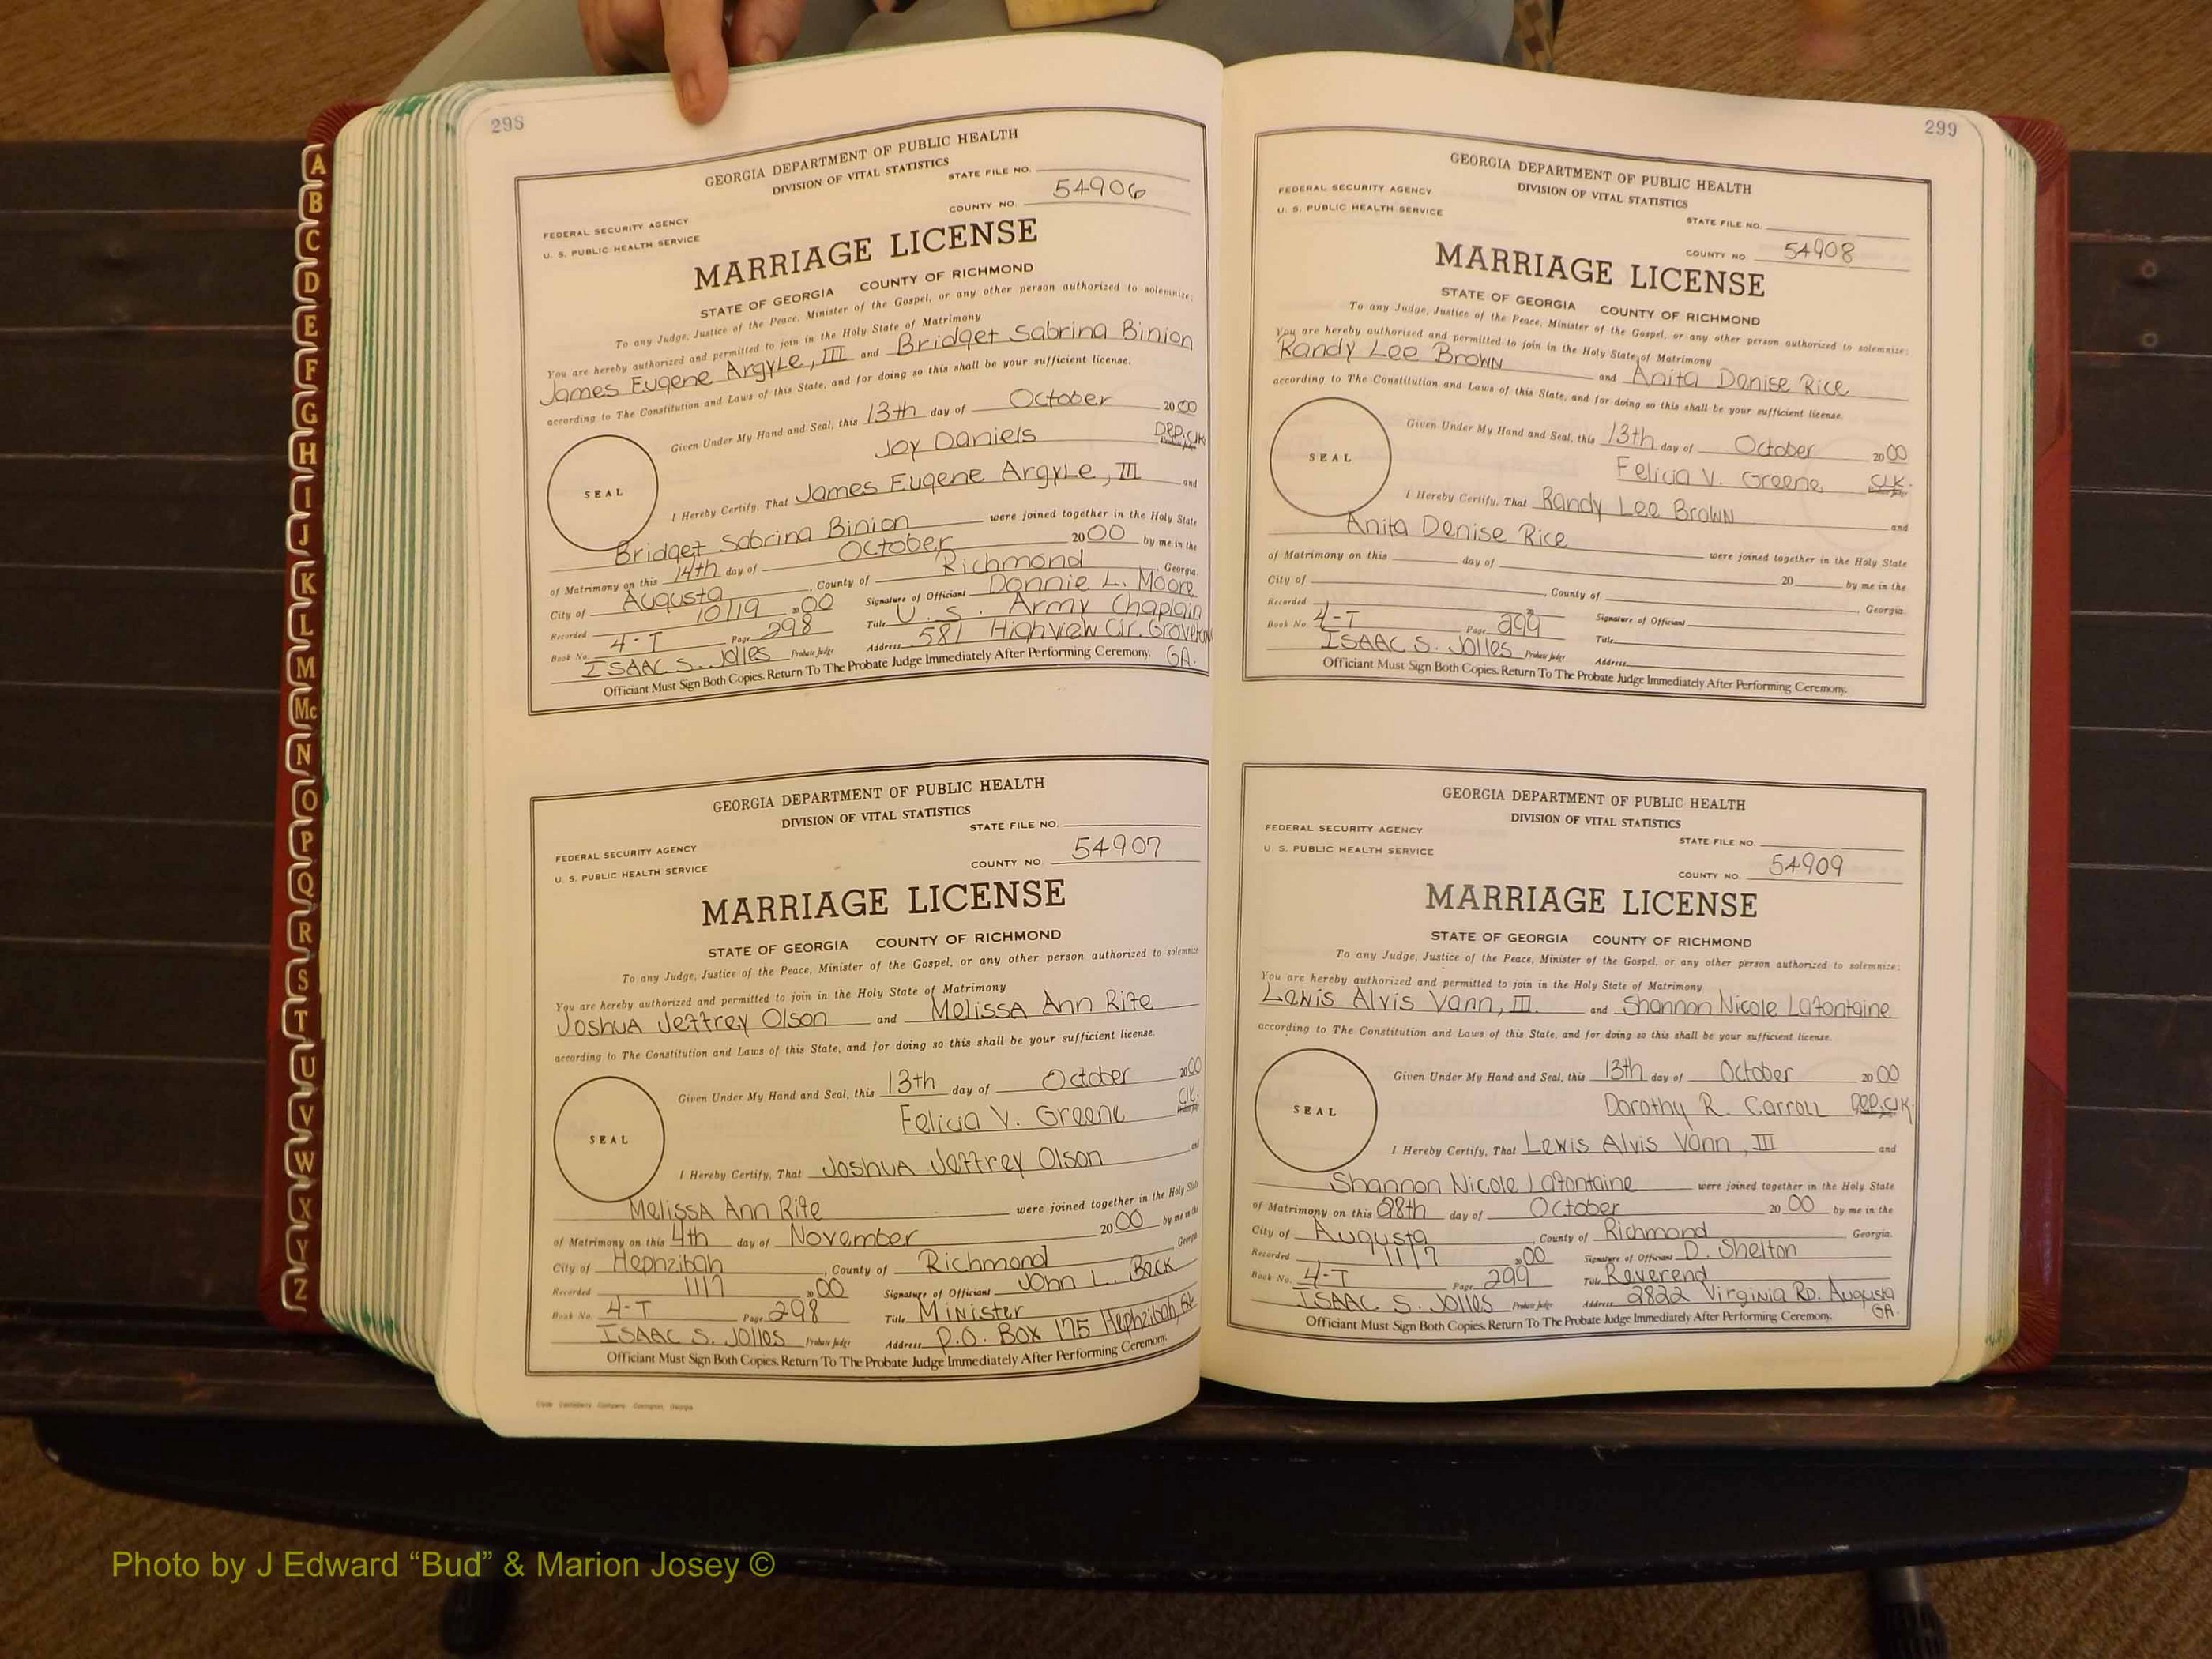 298
GEORGIA DEPARTMENT OF PUBLIC HEALTH
DIVISION OF VITAL STATISTICS
STATE FILE NO.
FEDERAL SECURITY AGENCY
U. S. PUBLIC HEALTH SERVICE
COUNTY NO. 54906
MARRIAGE LICENSE
STATE OF GEORGIA COUNTY OF RICHMOND
To any Judge, Justice of the Peace, Minister of the Gospel, or any other person authorized to solemnize:
You are hereby authorized and permitted to join in the Holy State of Matrimony
James Eugene Argyle, III and Bridget Sabrina Binion
according to The Constitution and Laws of this State, and for doing so this shall be your sufficient license.
Given Under My Hand and Seal, this 13th day of October 2000
Joy Daniels Dep. Clk.
SEAL
I Hereby Certify, That James Eugene Argyle, III and
Bridget Sabrina Binion were joined together in the Holy State
of Matrimony on this 14th day of October 2000 by me in the
City of Augusta, County of Richmond, Georgia.
Recorded 10/19 2000 Signature of Officiant Donnie L. Moore
Book No. 4-T Page 298 Title U.S. Army Chaplain
ISAAC S. Jolles Probate Judge Address 581 Highview Cir. Grovetown GA.
Officiant Must Sign Both Copies. Return To The Probate Judge Immediately After Performing Ceremony.
GEORGIA DEPARTMENT OF PUBLIC HEALTH
DIVISION OF VITAL STATISTICS
STATE FILE NO.
FEDERAL SECURITY AGENCY
U. S. PUBLIC HEALTH SERVICE
COUNTY NO. 54907
MARRIAGE LICENSE
STATE OF GEORGIA COUNTY OF RICHMOND
To any Judge, Justice of the Peace, Minister of the Gospel, or any other person authorized to solemnize
You are hereby authorized and permitted to join in the Holy State of Matrimony
Joshua Jeffrey Olson and Melissa Ann Rife
according to The Constitution and Laws of this State, and for doing so this shall be your sufficient license.
Given Under My Hand and Seal, this 13th day of October 2000
Felicia V. Greene Clk.
SEAL
I Hereby Certify, That Joshua Jeffrey Olson and
Melissa Ann Rife were joined together in the Holy State
of Matrimony on this 4th day of November 2000 by me in the
City of Hephzibah, County of Richmond Georgia
Recorded 11/7 2000 Signature of Officiant John L. Beck
Book No. 4-T Page 298 Title Minister
ISAAC S. Jolles Probate Judge Address P.O. Box 175 Hephzibah, GA
Officiant Must Sign Both Copies. Return To The Probate Judge Immediately After Performing Ceremony.
299
GEORGIA DEPARTMENT OF PUBLIC HEALTH
DIVISION OF VITAL STATISTICS
FEDERAL SECURITY AGENCY
U. S. PUBLIC HEALTH SERVICE
STATE FILE NO.
COUNTY NO 54908
MARRIAGE LICENSE
STATE OF GEORGIA COUNTY OF RICHMOND
To any Judge, Justice of the Peace, Minister of the Gospel, or any other person authorized to solemnize:
You are hereby authorized and permitted to join in the Holy State of Matrimony
Randy Lee Brown and Anita Denise Rice
according to The Constitution and Laws of this State, and for doing so this shall be your sufficient license.
Given Under My Hand and Seal, this 13th day of October 2000
Felicia V. Greene Clk.
SEAL
I Hereby Certify, That Randy Lee Brown and
Anita Denise Rice were joined together in the Holy State
of Matrimony on this day of 20 by me in the
City of , County of , Georgia
Recorded 20 Signature of Officiant
Book No. 4-T Page 299 Title
ISAAC S. Jolles Probate Judge Address
Officiant Must Sign Both Copies. Return To The Probate Judge Immediately After Performing Ceremony.
GEORGIA DEPARTMENT OF PUBLIC HEALTH
DIVISION OF VITAL STATISTICS
FEDERAL SECURITY AGENCY
U. S. PUBLIC HEALTH SERVICE
STATE FILE NO.
COUNTY NO. 54909
MARRIAGE LICENSE
STATE OF GEORGIA COUNTY OF RICHMOND
To any Judge, Justice of the Peace, Minister of the Gospel, or any other person authorized to solemnize:
You are hereby authorized and permitted to join in the Holy State of Matrimony
Lewis Alvis Vann, III. and Shannon Nicole Lafontaine
according to The Constitution and Laws of this State, and for doing so this shall be your sufficient license.
Given Under My Hand and Seal, this 13th day of October 2000
Dorothy R. Carroll Dep. Clk.
SEAL
I Hereby Certify, That Lewis Alvis Vann, III and
Shannon Nicole Lafontaine were joined together in the Holy State
of Matrimony on this 28th day of October 2000 by me in the
City of Augusta, County of Richmond Georgia.
Recorded 11/7 2000 Signature of Officiant D. Shelton
Book No. 4-T Page 299 Title Reverend
ISAAC S. Jolles Probate Judge Address 2822 Virginia Rd. Augusta GA.
Officiant Must Sign Both Copies. Return To The Probate Judge Immediately After Performing Ceremony.
A
B
C
D
E
F
G
H
I
J
K
L
M
Mc
N
O
P
Q
R
S
T
U
V
W
X
Y
Z
Photo by J Edward “Bud” & Marion Josey ©